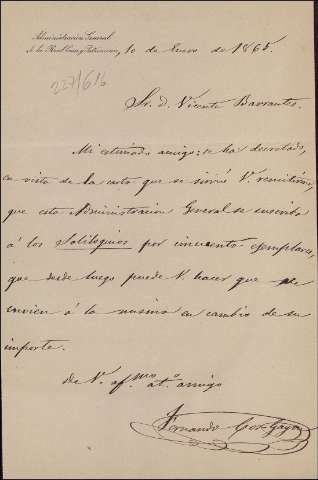 Administración General
de la Real Casa y Patrimonio,
10 de Enero de 1865.
227/616
Sr. D. Vicente Barrantes.
Mi estimado amigo: se ha decretado,
en vista de la carta que se sirvió V. remitirme,
que esta Administracion General se suscriba
á los Soliloquios por cincuenta ejemplares,
que desde luego puede V. hacer que se
envien á la misma en cambio de su
importe.
de V. afmo. ato. amigo
Fernando Cos-Gayon